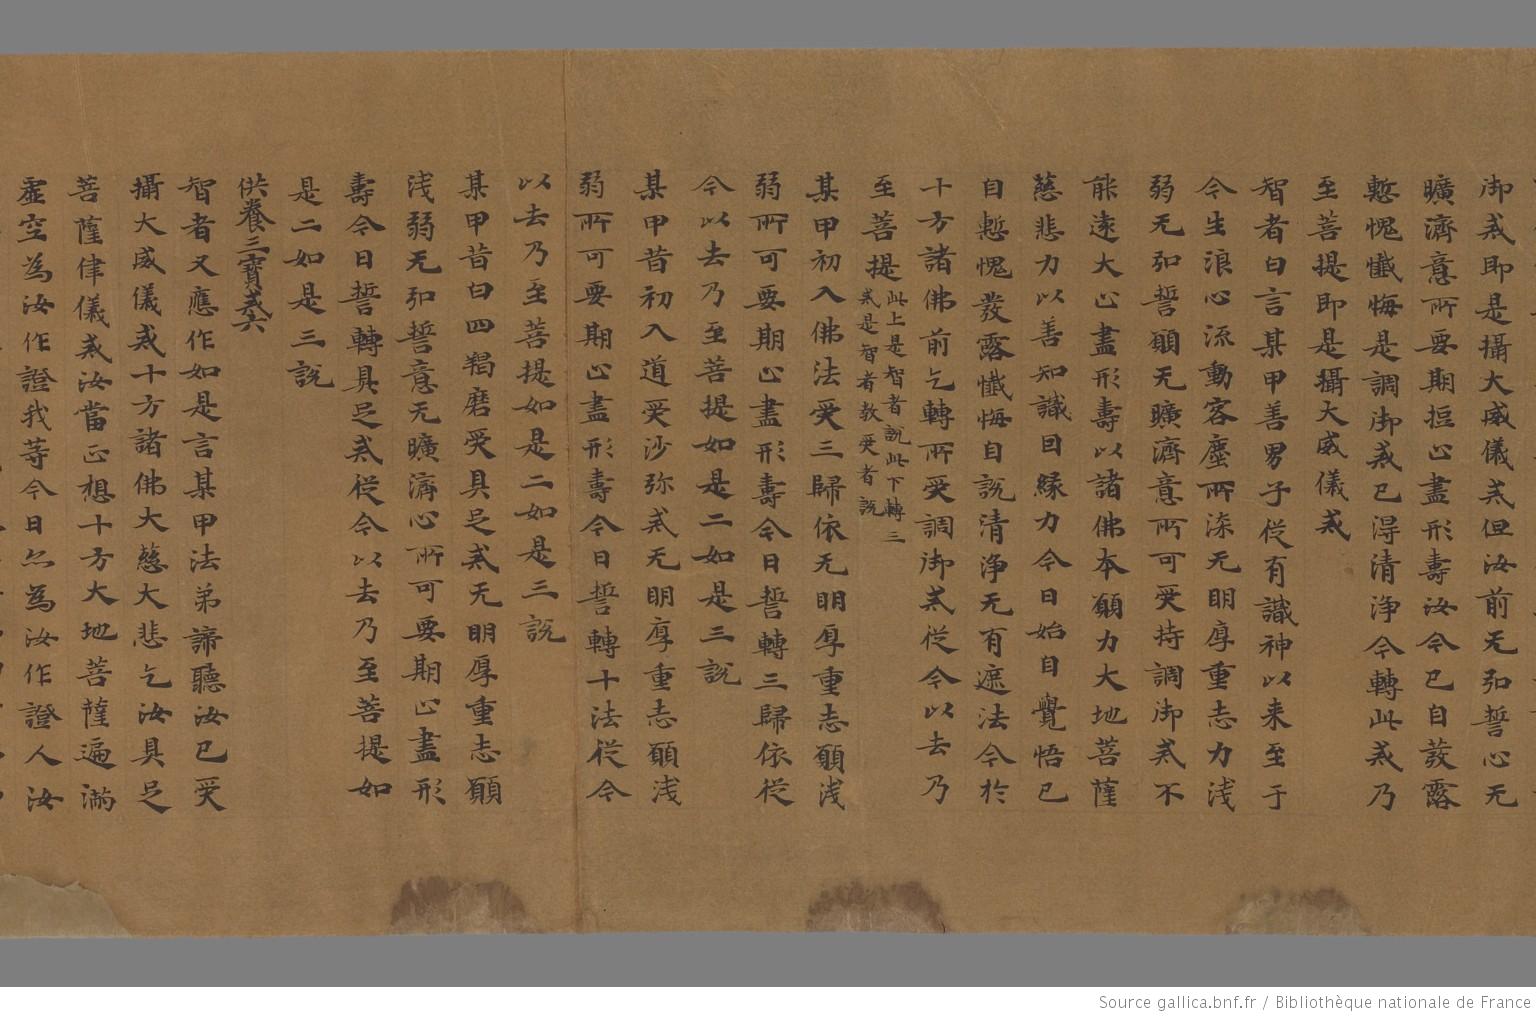 御戒即是攝大威儀戒但汝前无弘誓心无
曠濟意所要期拒心盡形壽汝今已自發露
慙愧懺悔是調御戒已淂清淨今轉此戒乃
至菩提即是攝大威儀戒
智者曰言某甲善男子從有識神以来至于
今生浪心流動客塵所染无明厚重志力浅
弱无弘誓願无曠濟意所可受持調御戒不
能遠大心盡形壽以諸佛本願力大地菩薩
慈悲力以善知識因緣力今日始自覺悟已
自慙愧發露懺悔自説清淨无有遮法今於
十方諸佛前乞轉所受調御戒從今以去乃
至菩提此上是智者説此下轉三
戒是智者教受者説
某甲初入佛法受三歸依无明厚重志願浅
弱所可要期心盡形壽今日誓轉三歸依從
今以去乃至菩提如是二如是三説
某甲昔初入道受沙弥戒无明厚重志願浅
弱所可要期心盡形壽今日誓轉十法從今
以去乃至菩提如是二如是三説
某甲昔曰四羯磨受具足戒无明厚重志願
浅弱无弘誓意无曠濟心所可要期心盡形
壽今日誓轉具足戒從今以去乃至菩提如
是二如是三説
供養三寶戒六
智者又應作如是言某甲法弟諦聽汝已受
攝大威儀戒十方諸佛大慈大悲乞汝具足
菩薩律儀戒汝當正想十方大地菩薩遍滿
虛空為汝作證我等今日亦為汝作證人汝
Source gallica.bnf.fr / Bibliothèque nationale de France